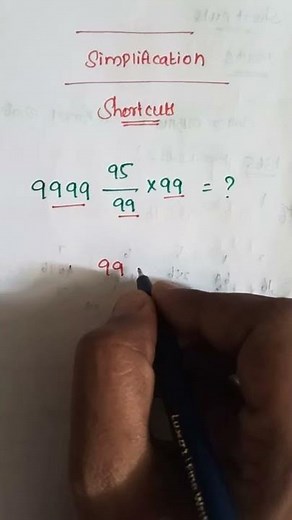 Simplification
Shortcuts
9999 95/99 × 99 = ?
99